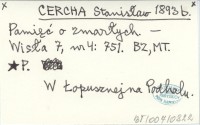 CERCHA Stanisław 1893 b.
Pamięć o zmarłych –
Wisła 7, nr 4: 751. BZ, MT.
★ P.
W Łopusznej na Podhalu.